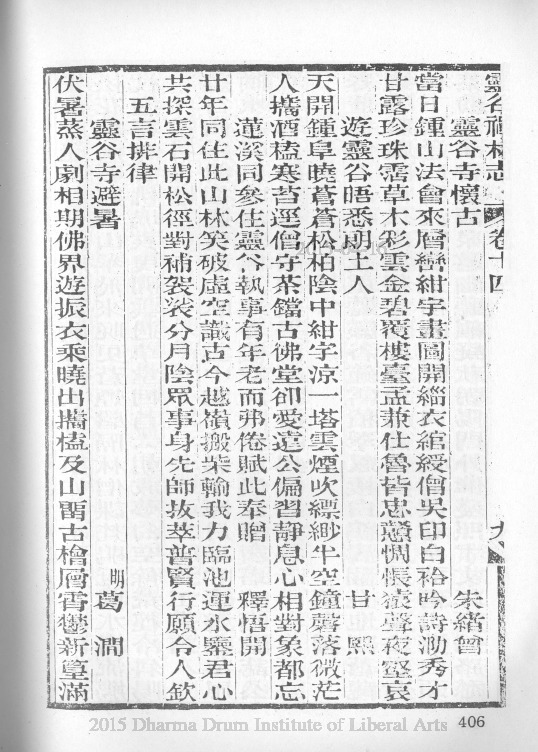 靈谷禪林志 卷十四 九
靈谷寺懷古 朱緒曾
當日鍾山法會來層巒紺宇畫圖開緇衣綰綬僧吳印白袷吟詩泐秀才
甘露珍珠霑草木彩雲金碧覆樓臺孟兼仕魯皆忠戇惆悵猿聲夜壑哀
遊靈谷晤悉朗上人 甘熙
天開鍾阜曉蒼蒼松柏陰中紺宇涼一塔雲煙吹縹緲半空鐘磬落微茫
人攜酒榼寒苔逕僧守茶鐺古佛堂卻愛遠公偏習靜息心相對象都忘
蓮溪同參住靈谷執事有年老而弗倦賦此奉贈 釋悟開
廿年同住此山林笑破虛空識古今越嶺搬柴輸我力臨池運水鑒君心
共探雲石開松徑對補袈裟分月陰眾事身先師拔萃普賢行願令人欽
五言排律
靈谷寺避暑 明 葛澗
伏暑蒸人劇相期佛界遊振衣乘曉出攜榼及山畱古檜層霄鬱新篁滿
2015 Dharma Drum Institute of Liberal Arts 406